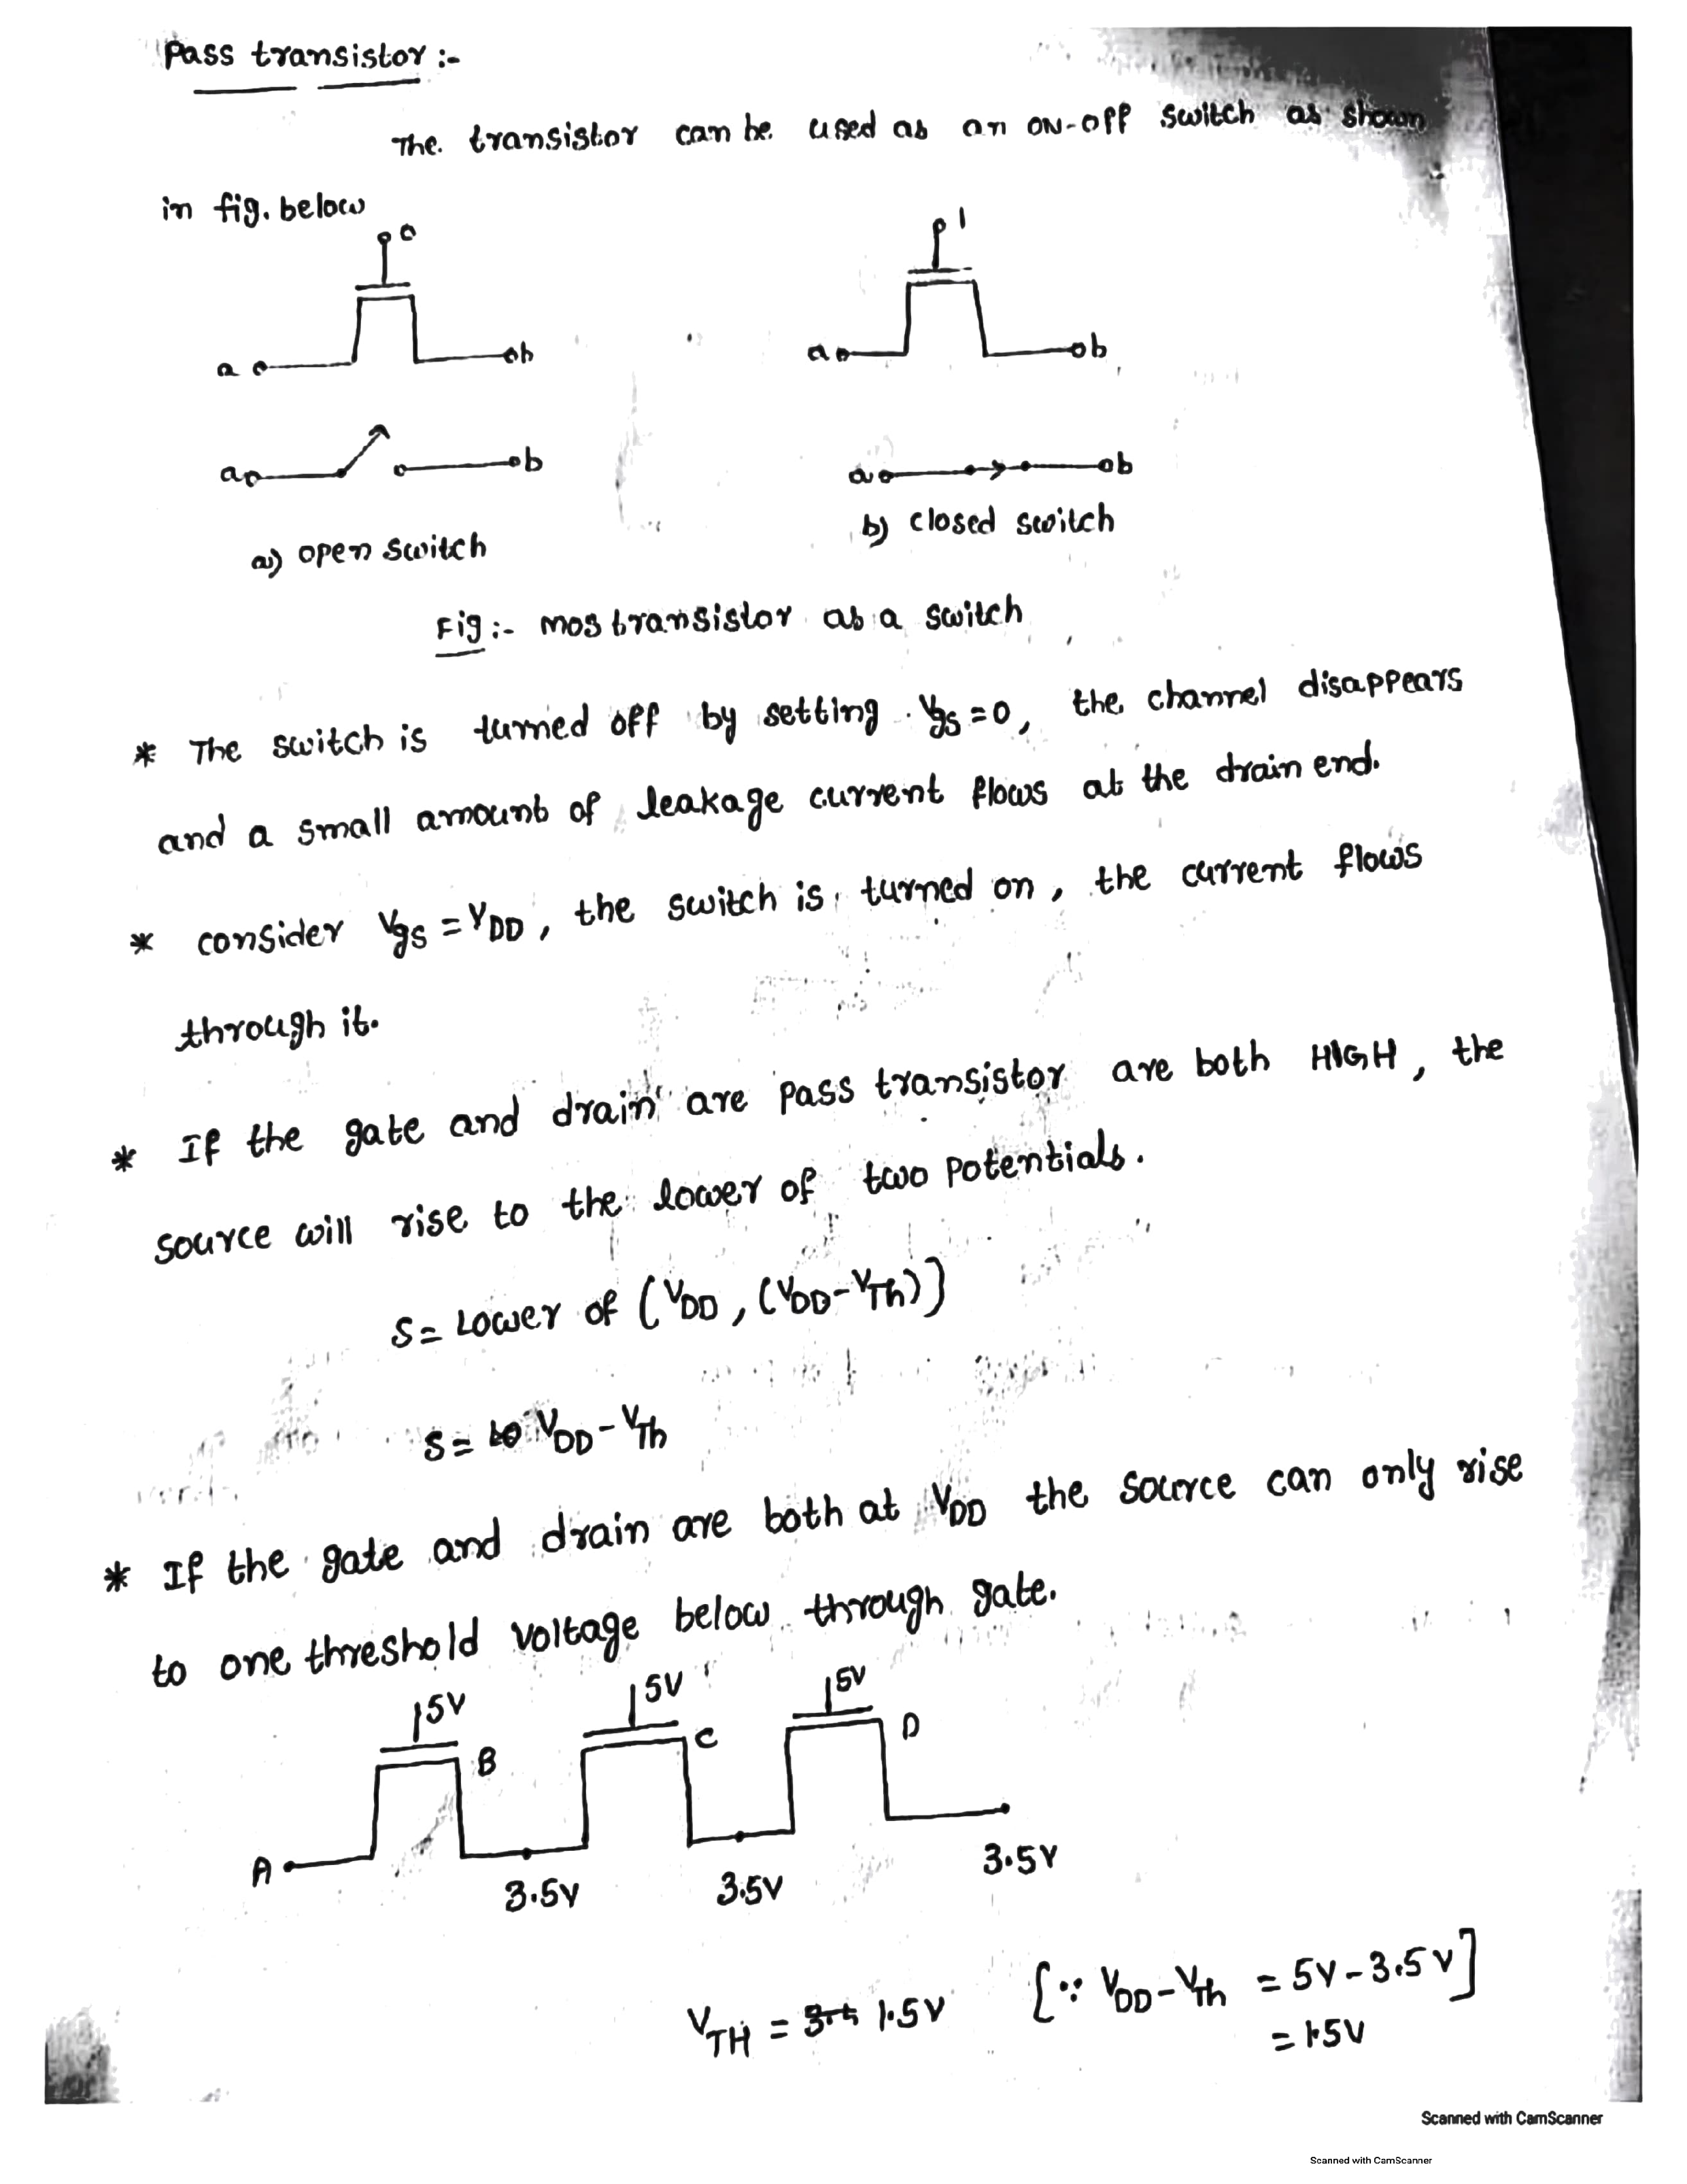 Pass transistor :-
The transistor can be used as an ON-OFF switch as shown
in fig. below
0
1
a b
a b
a b
a b
a) open switch
b) closed switch
Fig :- MOS transistor as a switch
* The switch is turned off by setting Vgs = 0, the channel disappears
and a small amount of leakage current flows at the drain end.
* consider Vgs = VDD, the switch is turned on, the current flows
through it.
* If the gate and drain are pass transistor are both HIGH, the
source will rise to the lower of two potentials.
S = Lower of (VDD, (VDD - VTh)]
S = VDD - VTh
* If the gate and drain are both at VDD the source can only rise
to one threshold voltage below through gate.
5V 5V 5V
B C D
A
3.5V 3.5V 3.5V
VTH = 1.5V [∵ VDD - VTh = 5V - 3.5V]
= 1.5V
Scanned with CamScanner
Scanned with CamScanner